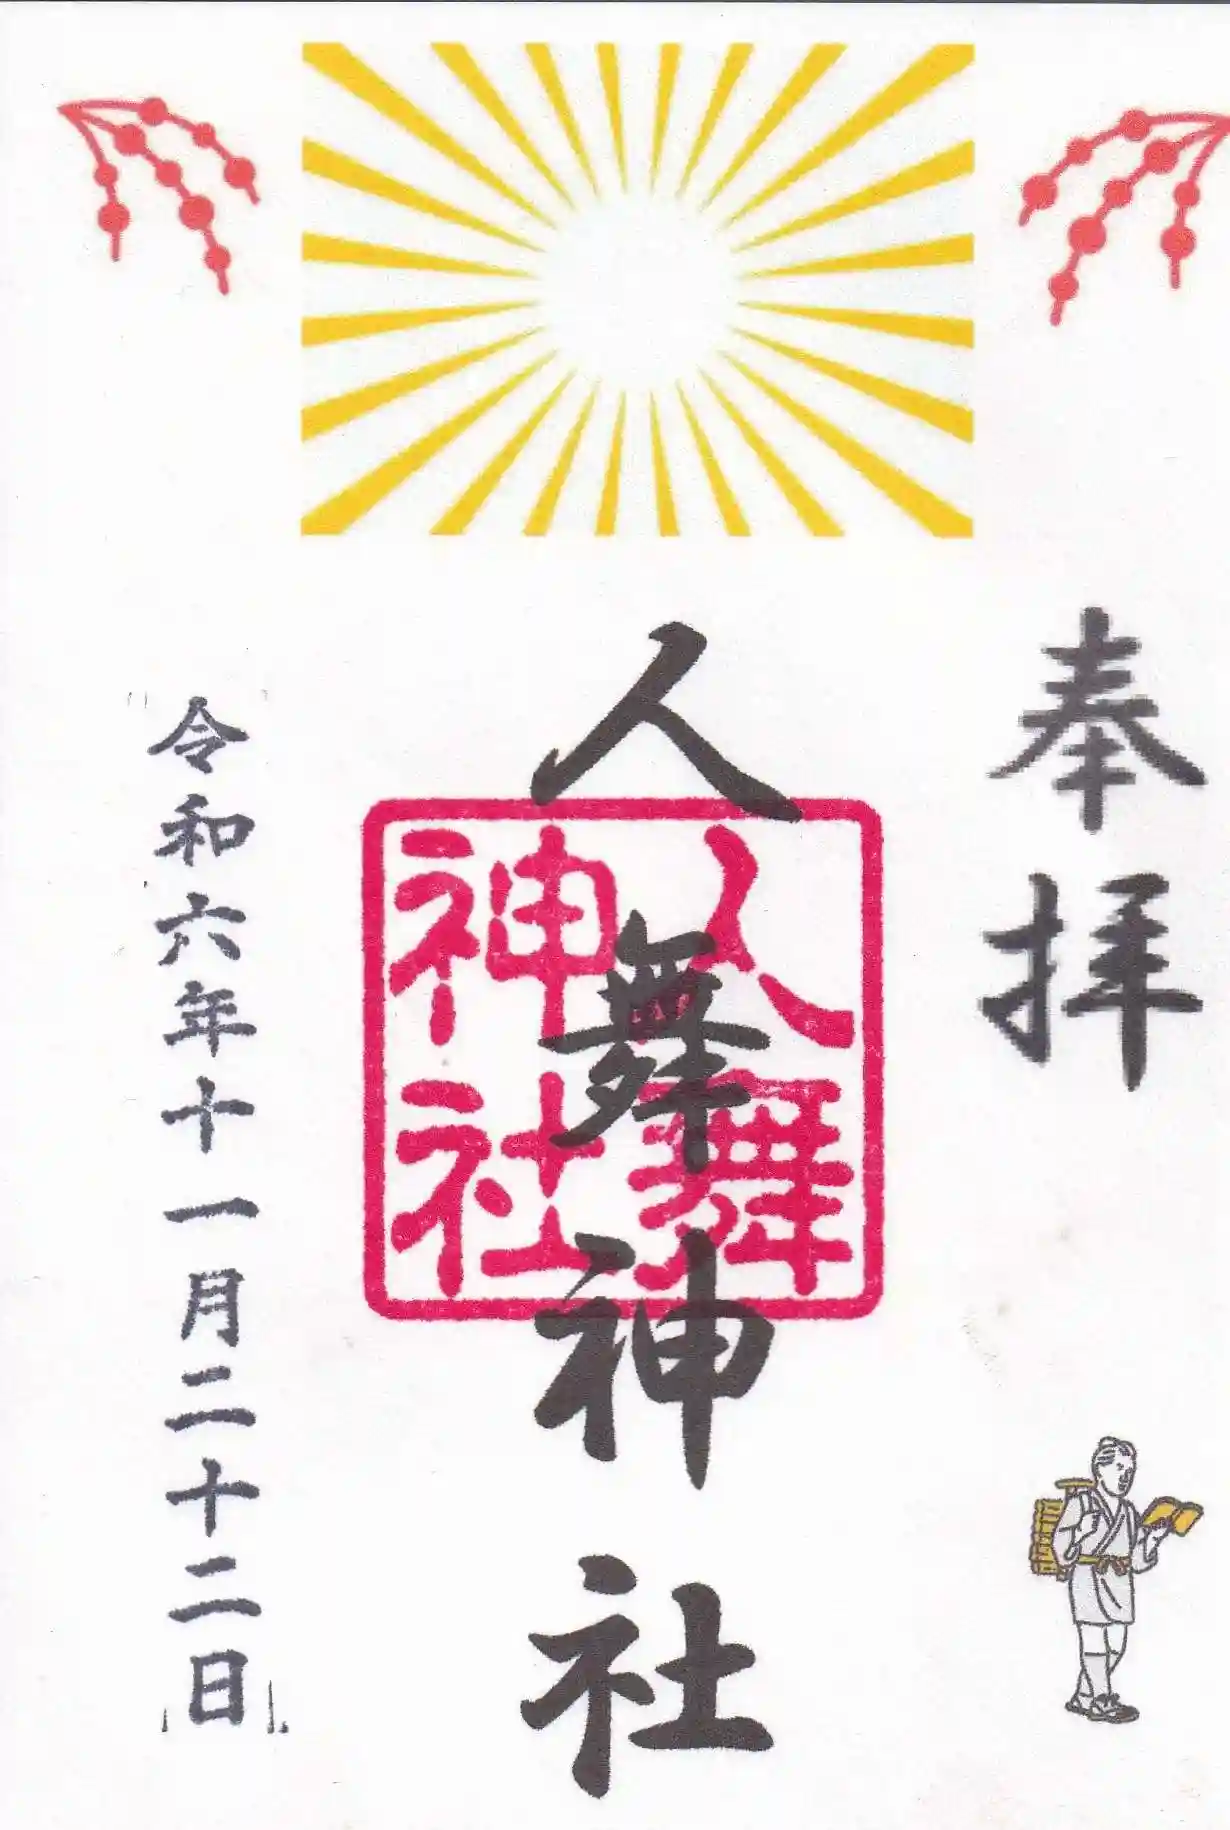 奉拝
人舞神社
人舞
神社
令和六年十一月二十二日